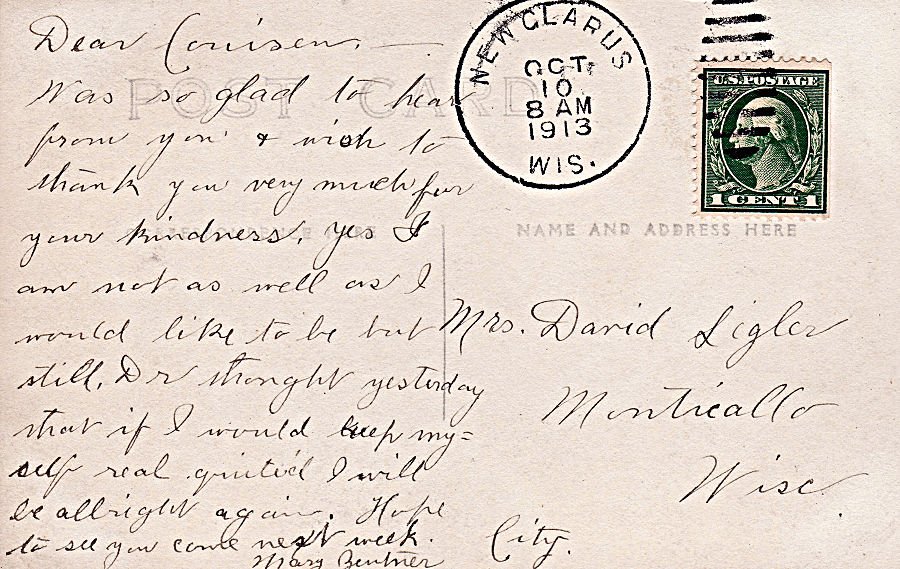 Dear Couisen, —
Was so glad to hear
from you & wish to
thank you very much for
your kindness. Yes I
am not as well as I
would like to be but
still. Dr thought yesterday
that if I would keep my=
self real quited I will
be allright again. Hope
to see you come next week.
Mary Zentner
POST CARD
NEW GLARUS
OCT
10
8 AM
1913
WIS.
U.S. POSTAGE
1 CENT 1
NAME AND ADDRESS HERE
Mrs. David Zigler
Monticallo
Wisc
City.